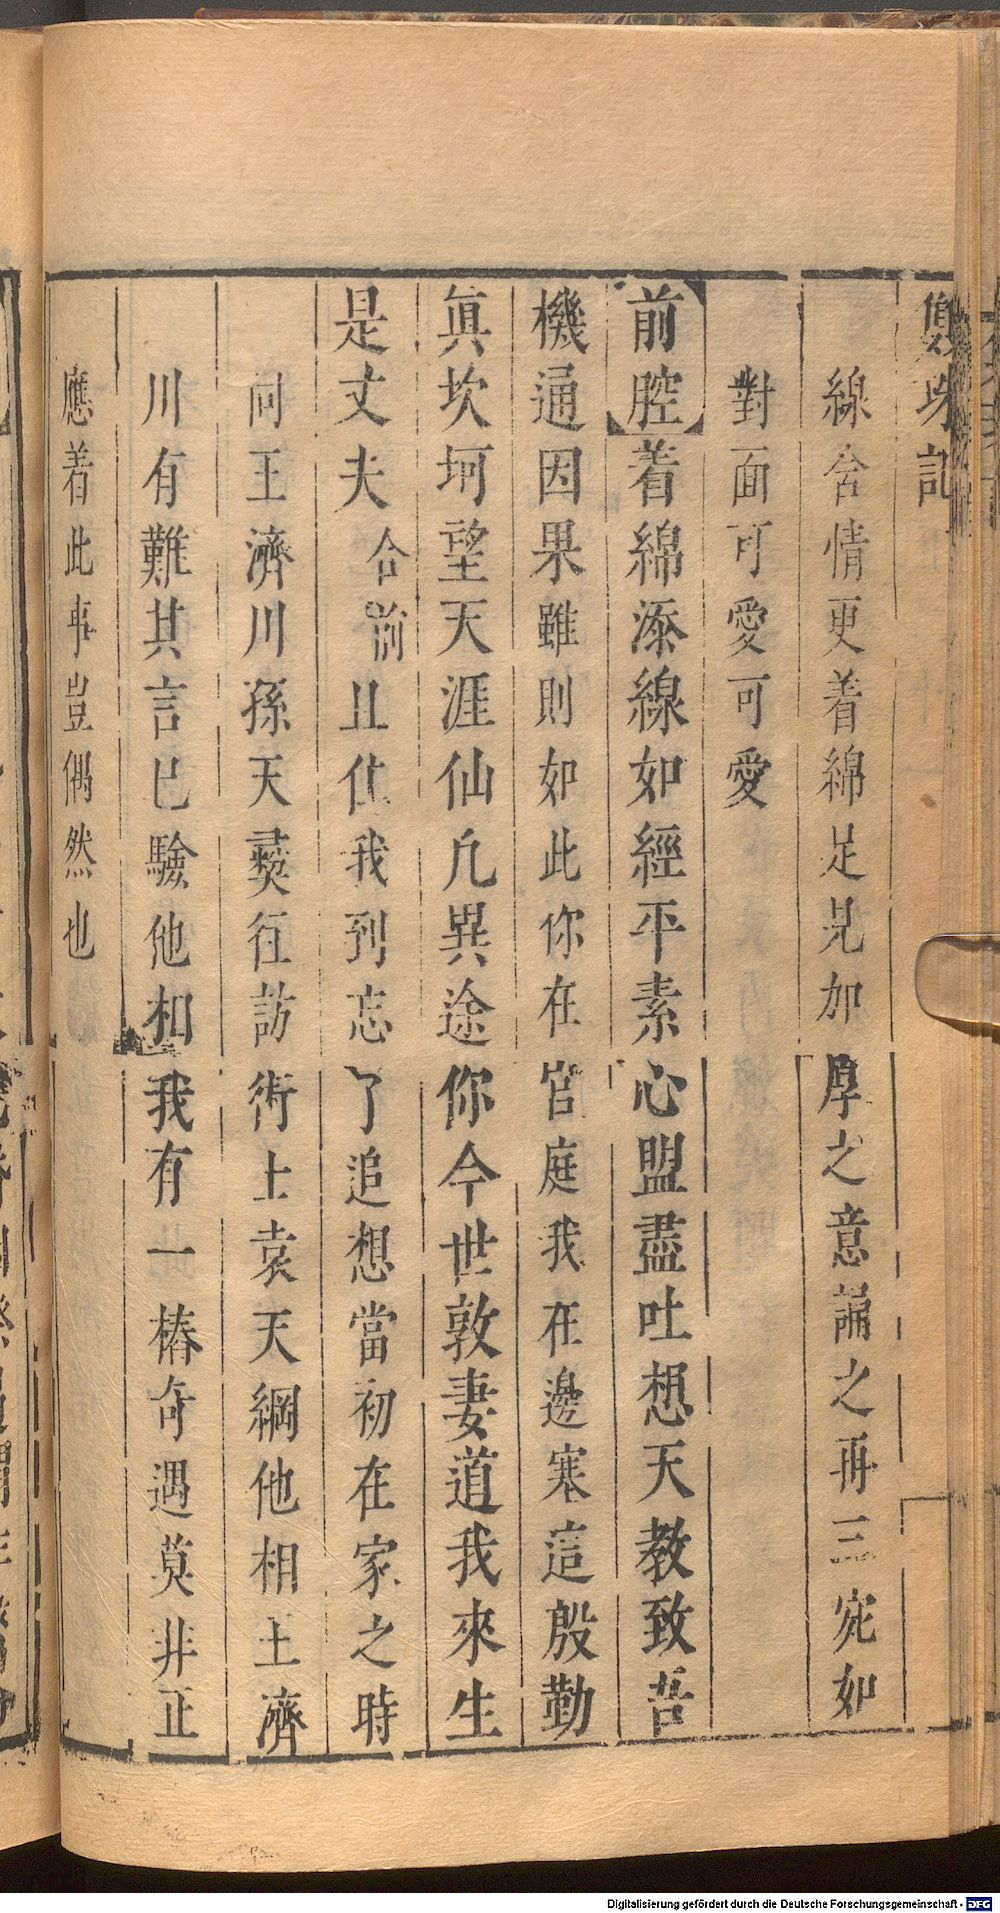 雙珠記
線含情更着綿足見加厚之意誦之再三宛如
對面可愛可愛
前腔着綿添線如經平素心盟盡吐想天教致吾
機通因果雖則如此你在宮庭我在邊寒這殷勤
眞坎坷望天涯仙凡異途你今世敦妻道我來生
是丈夫合前且住我到忘了追想當初在家之時
同王濟川孫天彝徃訪術士袁天綱他相土濟
川有難其言已驗他相我有一樁奇遇莫非正
應着此事豈偶然也
Digitalisierung gefördert durch die Deutsche Forschungsgemeinschaft - DFG